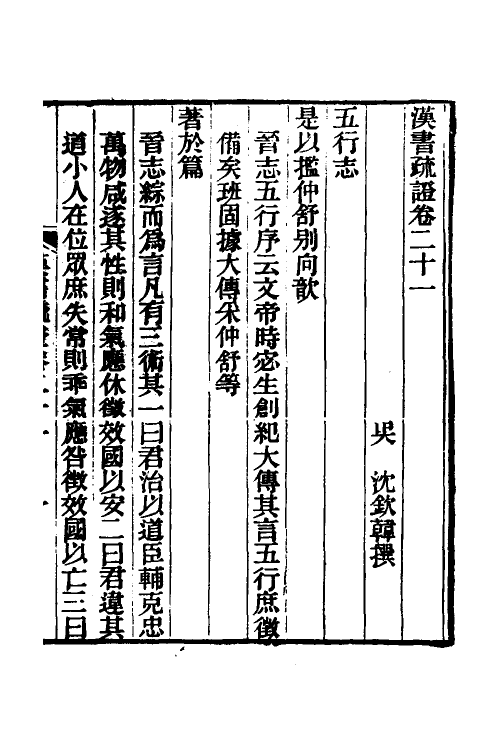 漢書疏證卷二十一
吳　沈欽韓撰
五行志
是以㩜仲舒别向歆
晉志五行序云文帝時宓生創紀大傳其言五行庶徵
備矣班固據大傳采仲舒等
著於篇
晉志綜而爲言凡有三術其一曰君治以道臣輔克忠
萬物咸遂其性則和氣應休徵效國以安二曰君違其
道小人在位眾庶失常則乖氣應咎徵效國以亡三曰